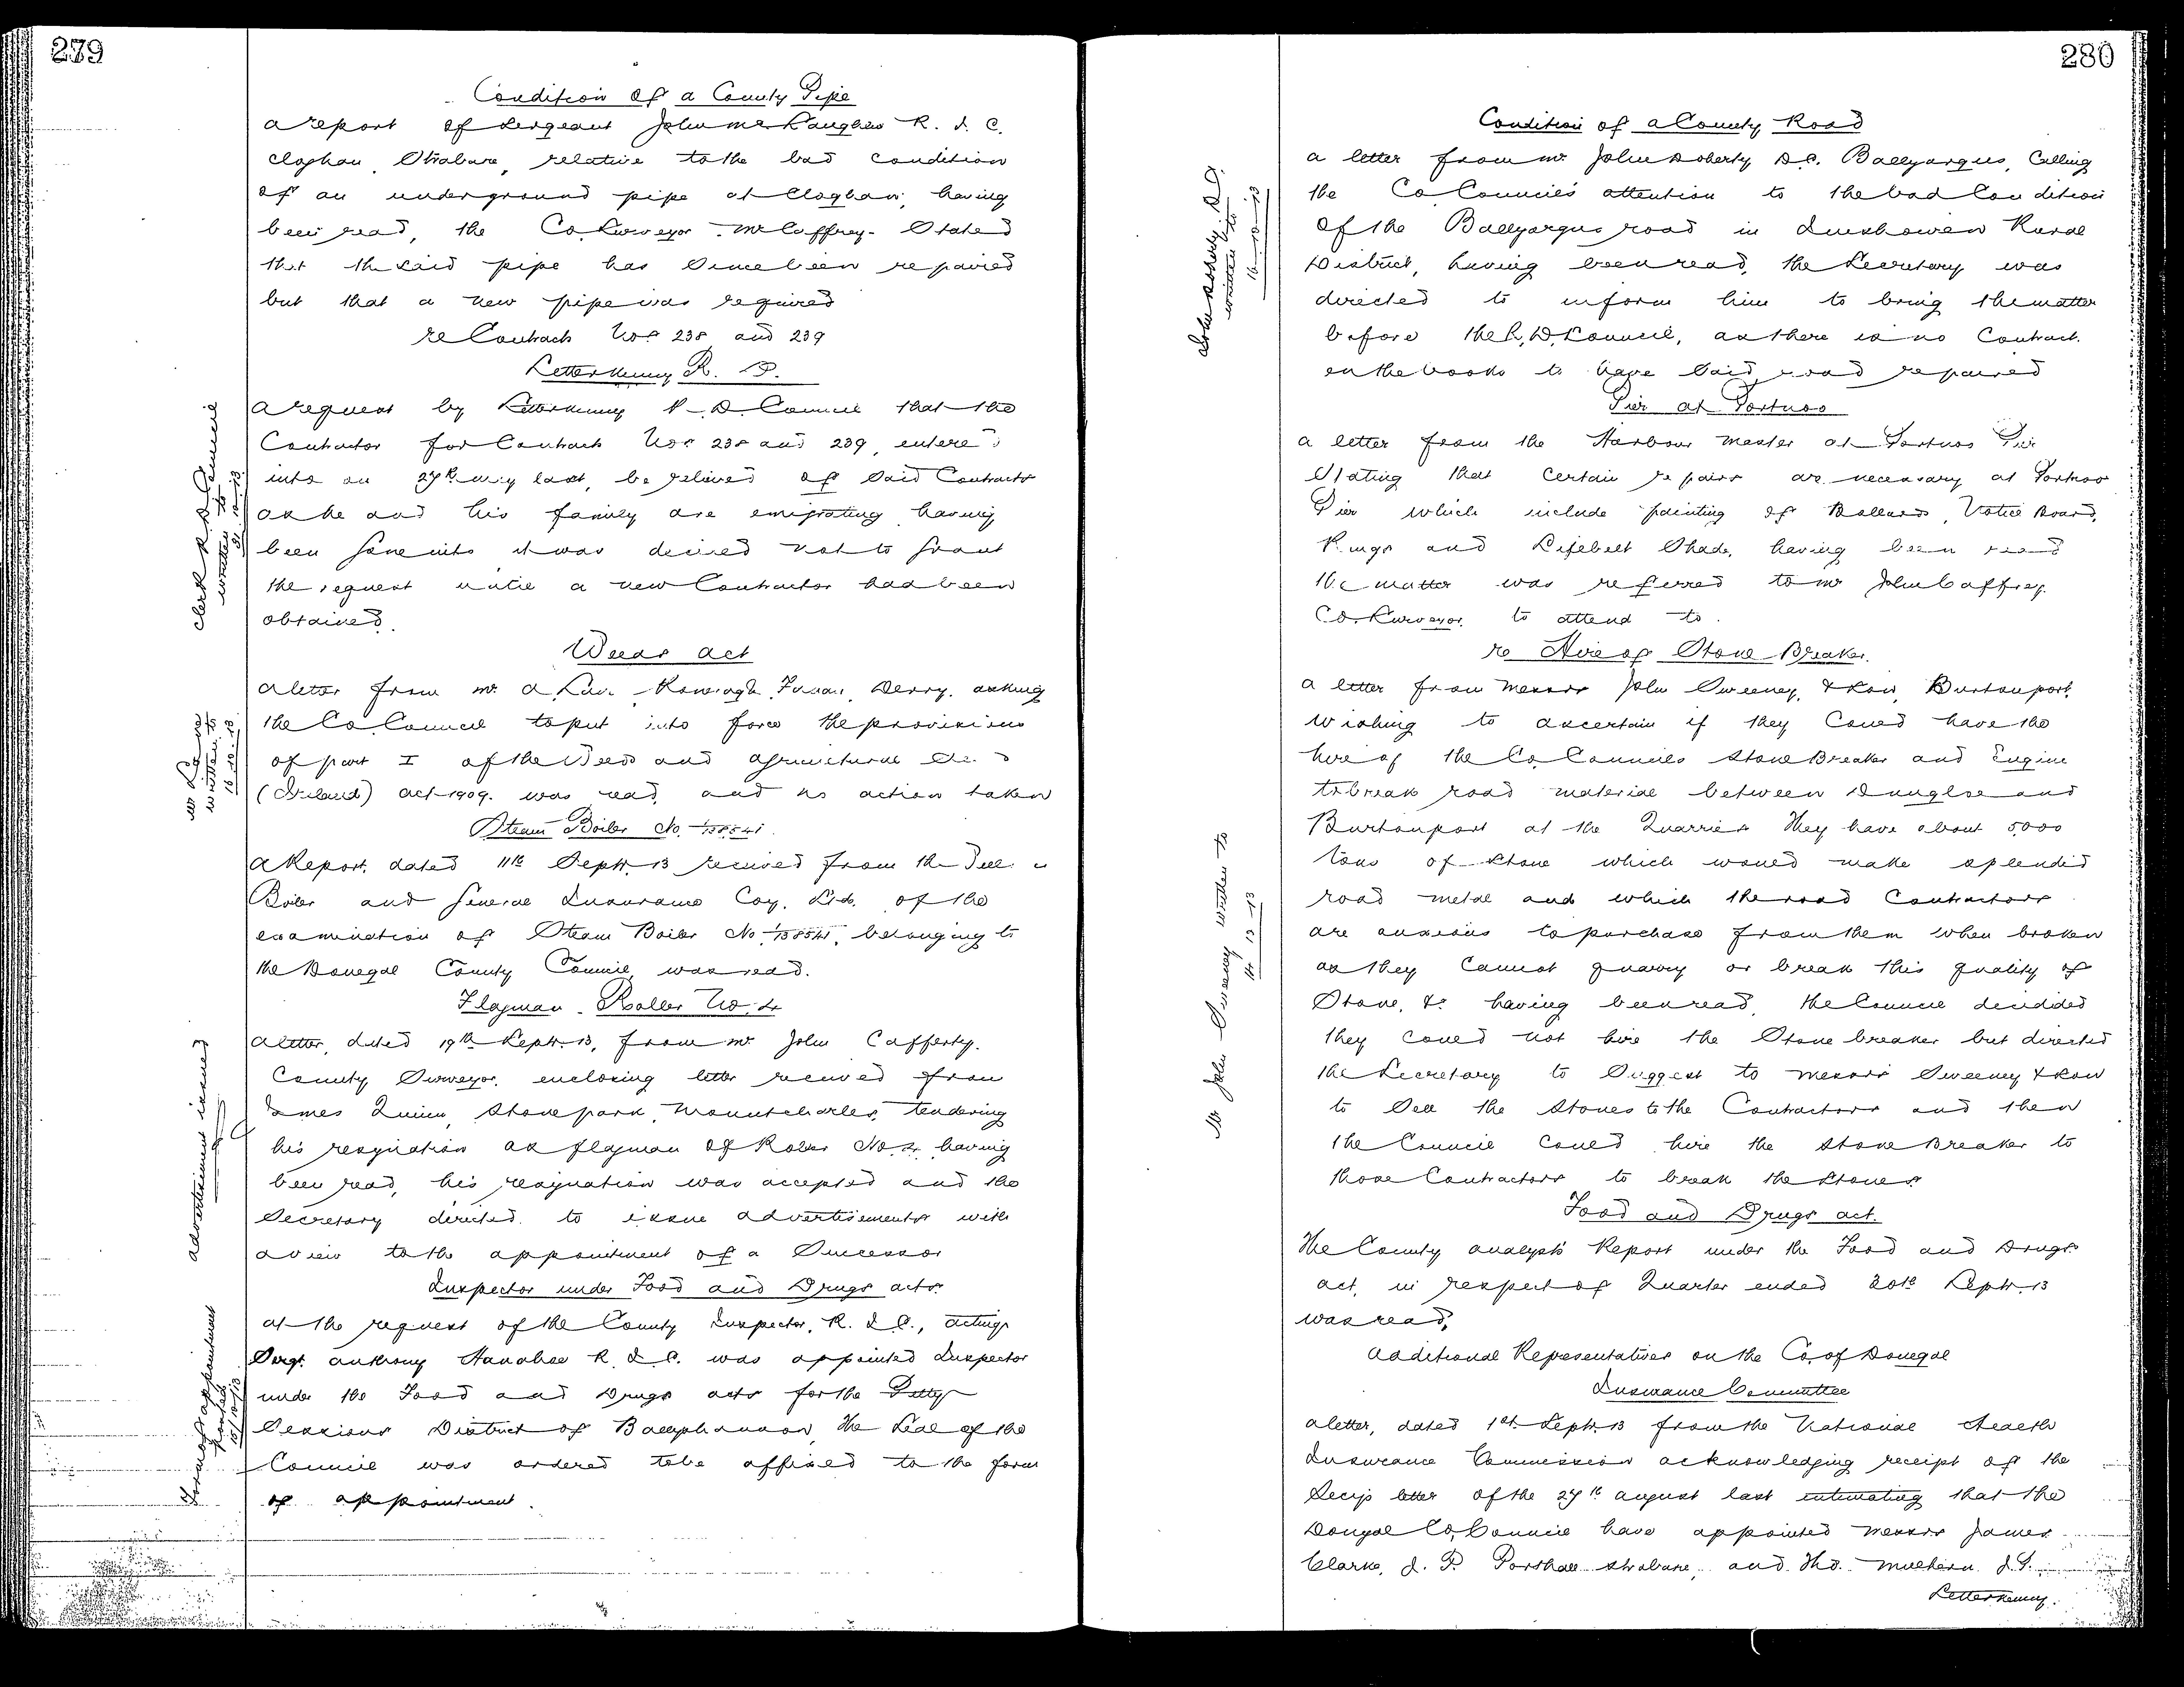 279
Condition of a County Pipe
A report of Sergeant John McLaughlin R. I. C.
Cloghan, Strabane, relative to the bad condition
of an underground pipe at Cloghan, having
been read, the Co. Surveyor Mr Caffrey - Stated
that the said pipe has since been repaired
but that a new pipe was required
re Contracts Nos 238 and 239
Letterkenny R. D.
Clerk R. D. Council
written to
A request by Letterkenny R. D. Council that the
Contractor for Contracts Nos 238 and 239, entered
into on 27th May last, be relieved of said Contracts
as he and his family are emigrating having
been gone into it was decided not to grant
the request until a new Contractor had been
obtained.
Weeds Act
written to
A letter from Mr. Derry, asking
the Co. Council to put into force the provisions
of part I of the Weeds and Agricultural
(Ireland) Act 1909. was read and no action taken
Steam Boiler No. 138541.
A Report, dated 11th Septr. 13 received from the
Boiler and General Insurance Coy. Ltd. of the
examination of Steam Boiler No. 138541, belonging to
the Donegal County Council was read.
Flagman - Roller No. 4
advertisement issued
A letter, dated 19th Septr. 13, from Mr John Cafferty.
County Surveyor, enclosing letter received from
James Quinn, Stonepark, Mountcharles, tendering
his resignation as flagman of Roller No. 4 having
been read, his resignation was accepted and the
Secretary directed to issue advertisements with
a view to the appointment of a Successor
Inspector under Food and Drugs acts.
Form of appointment
15/10/13
at the request of the County Inspector, R. I. C., acting
Sergt. Anthony R. I. C. was appointed Inspector
under the Food and Drugs acts for the Petty
Sessions District of Ballyshannon, the Seal of the
Council was ordered to be affixed to the form
of appointment.
280
Condition of a County Road
John Doherty D.C.
written to
A letter from Mr John Doherty D.C. Ballyargus, Calling
the Co. Council's attention to the bad Condition
of the Ballyargus road in Inishowen Rural
District, having been read, the Secretary was
directed to inform him to bring the matter
before the R. D. Council, as there is no Contract
on the books to have said road repaired
Pier at Portnoo
A letter from the Harbour Master at Portnoo Pier
Stating that certain repairs are necessary at Portnoo
Pier which include painting of Bollards, Notice Board,
Rings and Lifebelt Shade, having been read
the matter was referred to Mr John Caffrey.
Co. Surveyor to attend to.
re Hire of Stone Breaker.
Mr John Sweeney written to
A letter from Messrs John Sweeney, & Son, Burtonport,
Wishing to ascertain if they Could have the
hire of the Co. Councils Stone Breaker and Engine
to break road material between Dungloe and
Burtonport at the Quarries. They have about 5,000
tons of stone which would make splendid
road metal and which the road Contractors
are anxious to purchase from them when broken
as they cannot quarry or break this quality of
Stone, &c having been read, the Council decided
they could not hire the Stone breaker but directed
the Secretary to Suggest to Messrs Sweeney & Son
to Sell the Stones to the Contractors and then
the Council could hire the Stone Breaker to
those Contractors to break the Stones.
Food and Drugs act.
The County analyst's Report under the Food and Drugs
act, in respect of Quarter ended 30th Septr. 13
was read.
Additional Representatives on the Co. of Donegal
Insurance Committee
A letter, dated 1st Septr. 13 from the National Health
Insurance Commission acknowledging receipt of the
Secy's letter of the 27th August last intimating that the
Donegal Co. Council have appointed Messrs James
Clarke, J. P. Porthall Strabane, and Thos. Mulhern J.P.
Letterkenny.